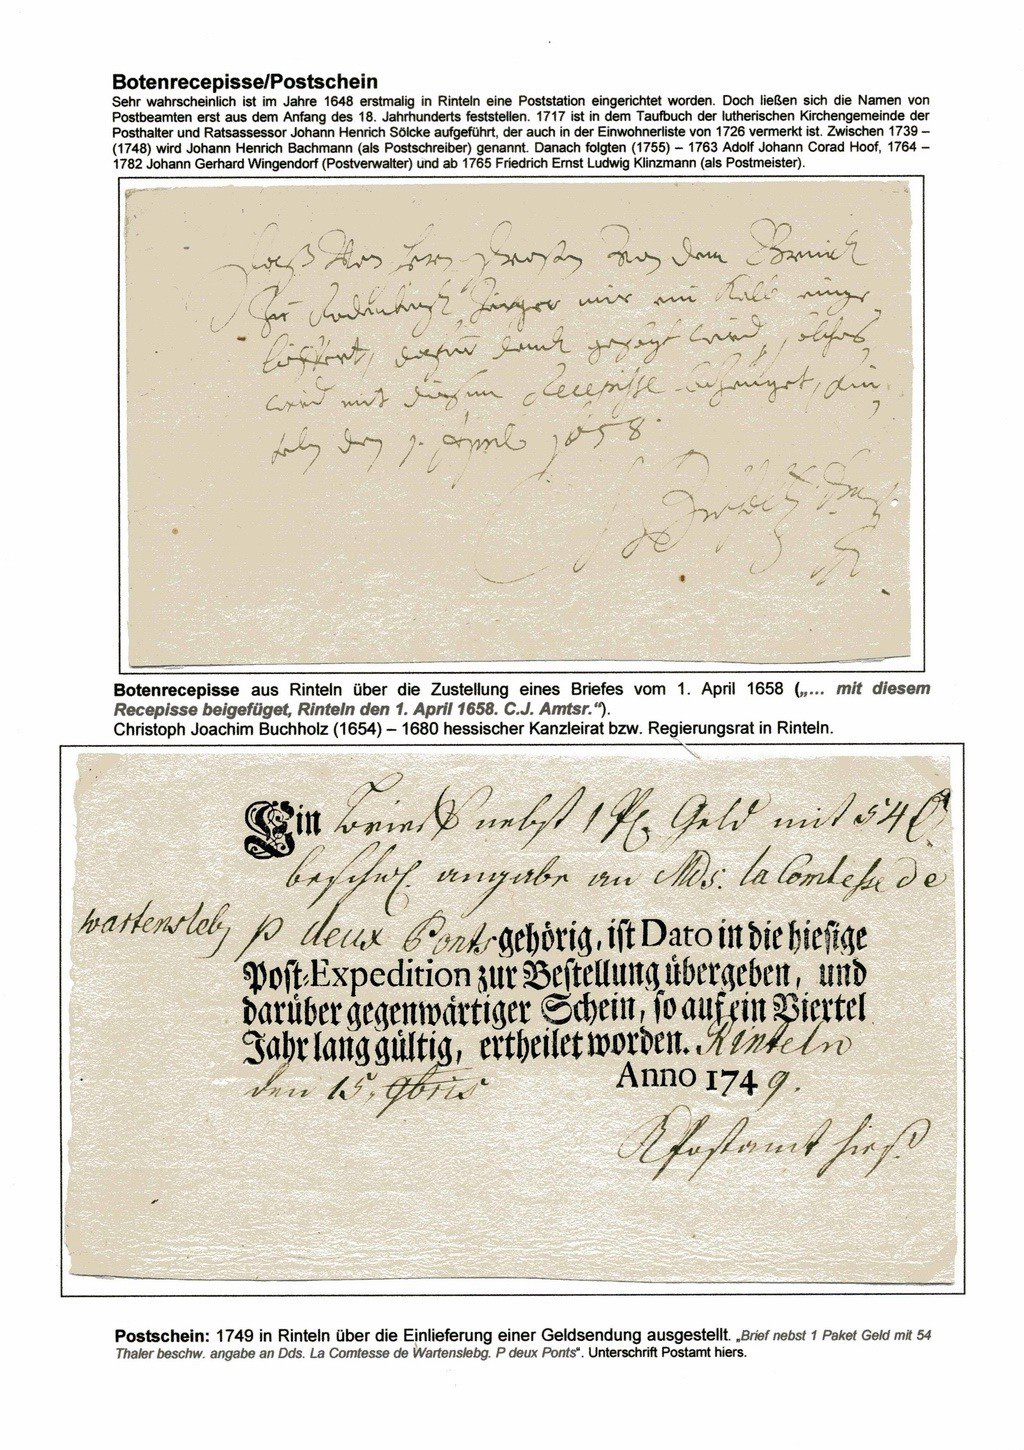 Botenrecepisse/Postschein
Sehr wahrscheinlich ist im Jahre 1648 erstmalig in Rinteln eine Poststation eingerichtet worden. Doch ließen sich die Namen von
Postbeamten erst aus dem Anfang des 18. Jahrhunderts feststellen. 1717 ist in dem Taufbuch der lutherischen Kirchengemeinde der
Posthalter und Ratsassessor Johann Henrich Sölcke aufgeführt, der auch in der Einwohnerliste von 1726 vermerkt ist. Zwischen 1739 –
(1748) wird Johann Henrich Bachmann (als Postschreiber) genannt. Danach folgten (1755) – 1763 Adolf Johann Corad Hoof, 1764 –
1782 Johann Gerhard Wingendorf (Postverwalter) und ab 1765 Friedrich Ernst Ludwig Klinzmann (als Postmeister).
Daß von dem
mir ein Kalb einge
gesagt wird, solches
wird mit diesem Recepisse Rin
teln den 1. April 1658
Botenrecepisse aus Rinteln über die Zustellung eines Briefes vom 1. April 1658 („... mit diesem
Recepisse beigefüget, Rinteln den 1. April 1658. C.J. Amtsr.“).
Christoph Joachim Buchholz (1654) – 1680 hessischer Kanzleirat bzw. Regierungsrat in Rinteln.
Ein Brieff nebst 1 P. Geld mit 54
beschw. angabe an Mds: la Comtesse de
wartensleb
P deux Ponts gehörig, ist Dato in die hiesige
Post-Expedition zur Bestellung übergeben, und
darüber gegenwärtiger Schein, so auf ein Viertel
Jahr lang gültig, ertheilet worden. Rinteln
den 15. 9bris Anno 1749.
Postamt hies.
Postschein: 1749 in Rinteln über die Einlieferung einer Geldsendung ausgestellt. „Brief nebst 1 Paket Geld mit 54
Thaler beschw. angabe an Dds. La Comtesse de Wartenslebg. P deux Ponts“. Unterschrift Postamt hiers.